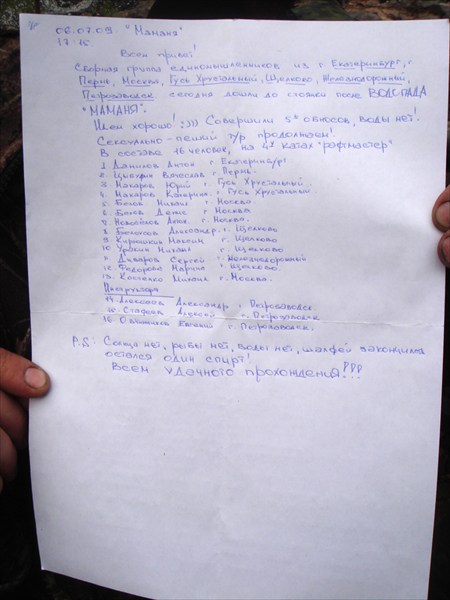 06.07.09 "Маманя"
17:15
Всем привет!
Сборная группа единомышленников из г. Екатеринбург,
Пермь, Москва, Гусь Хрустальный, Щелково, Железнодорожный,
Петрозаводск сегодня дошли до стоянки после ВОДОПАДА
"МАМАНЯ".
Идем хорошо! :))) Совершили 5ть обносов, воды нет!
Сексуально-пеший тур продолжаем!
В составе 16 человек, на 4х катах "рафтмастер"
1. Антон г. Екатеринбург
2. Вячеслав г. Пермь.
3. Макаров Юрий г. Гусь Хрустальный.
4. Макарова г. Гусь Хрустальный.
5. Михаил г. Москва.
6. Денис г. Москва
7. г. Москва.
8. Александр г. Щелково
9. Максим г. Щелково
10. Михаил г. Щелково
11. Сергей г. Железнодорожный
12. Федорова Марина г. Щелково.
13. Михаил г. Москва.
Инструктора
14. Александр г. Петрозаводск
15. Алексей г. Петрозаводск
16. Евгений г. Петрозаводск.
P.S: Солнца нет, рыбы нет, воды нет, шалфей закончился
остался один спирт!
Всем удачного прохождения!!!